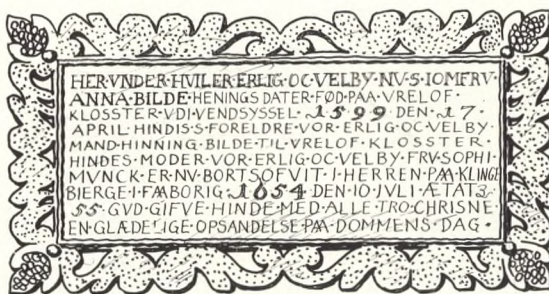 HER·VNDER·HVILER·ERLIG·OC·VELBY·NV·S·IOMFRV·
ANNA·BILDE·HENINGS DATER·FØD·PAA·VRELOF·
KLOSSTER·VDI·VENDSYSSEL·1599·DEN·17·
APRIL·HINDIS·S·FORELDRE·VOR·ERLIG·OC·VELBY·
MAND·HINNING·BILDE·TIL·VRELOF·KLOSSTER·
HINDES·MODER·VOR·ERLIG·OC·VELBY·FRV·SOPHI·
MVNCK·ER·NV·BORTSOFVIT·I·HERREN·PAA·KLINGE
BIERGE·I·FAABORIG·1654·DEN·10·JULI·ÆTATS
55·GVD·GIFVE·HINDE·MED·ALLE·TRO·CHRISNE
EN·GLÆDELIGE·OPSANDELSE·PAA·DOMMENS·DAG·